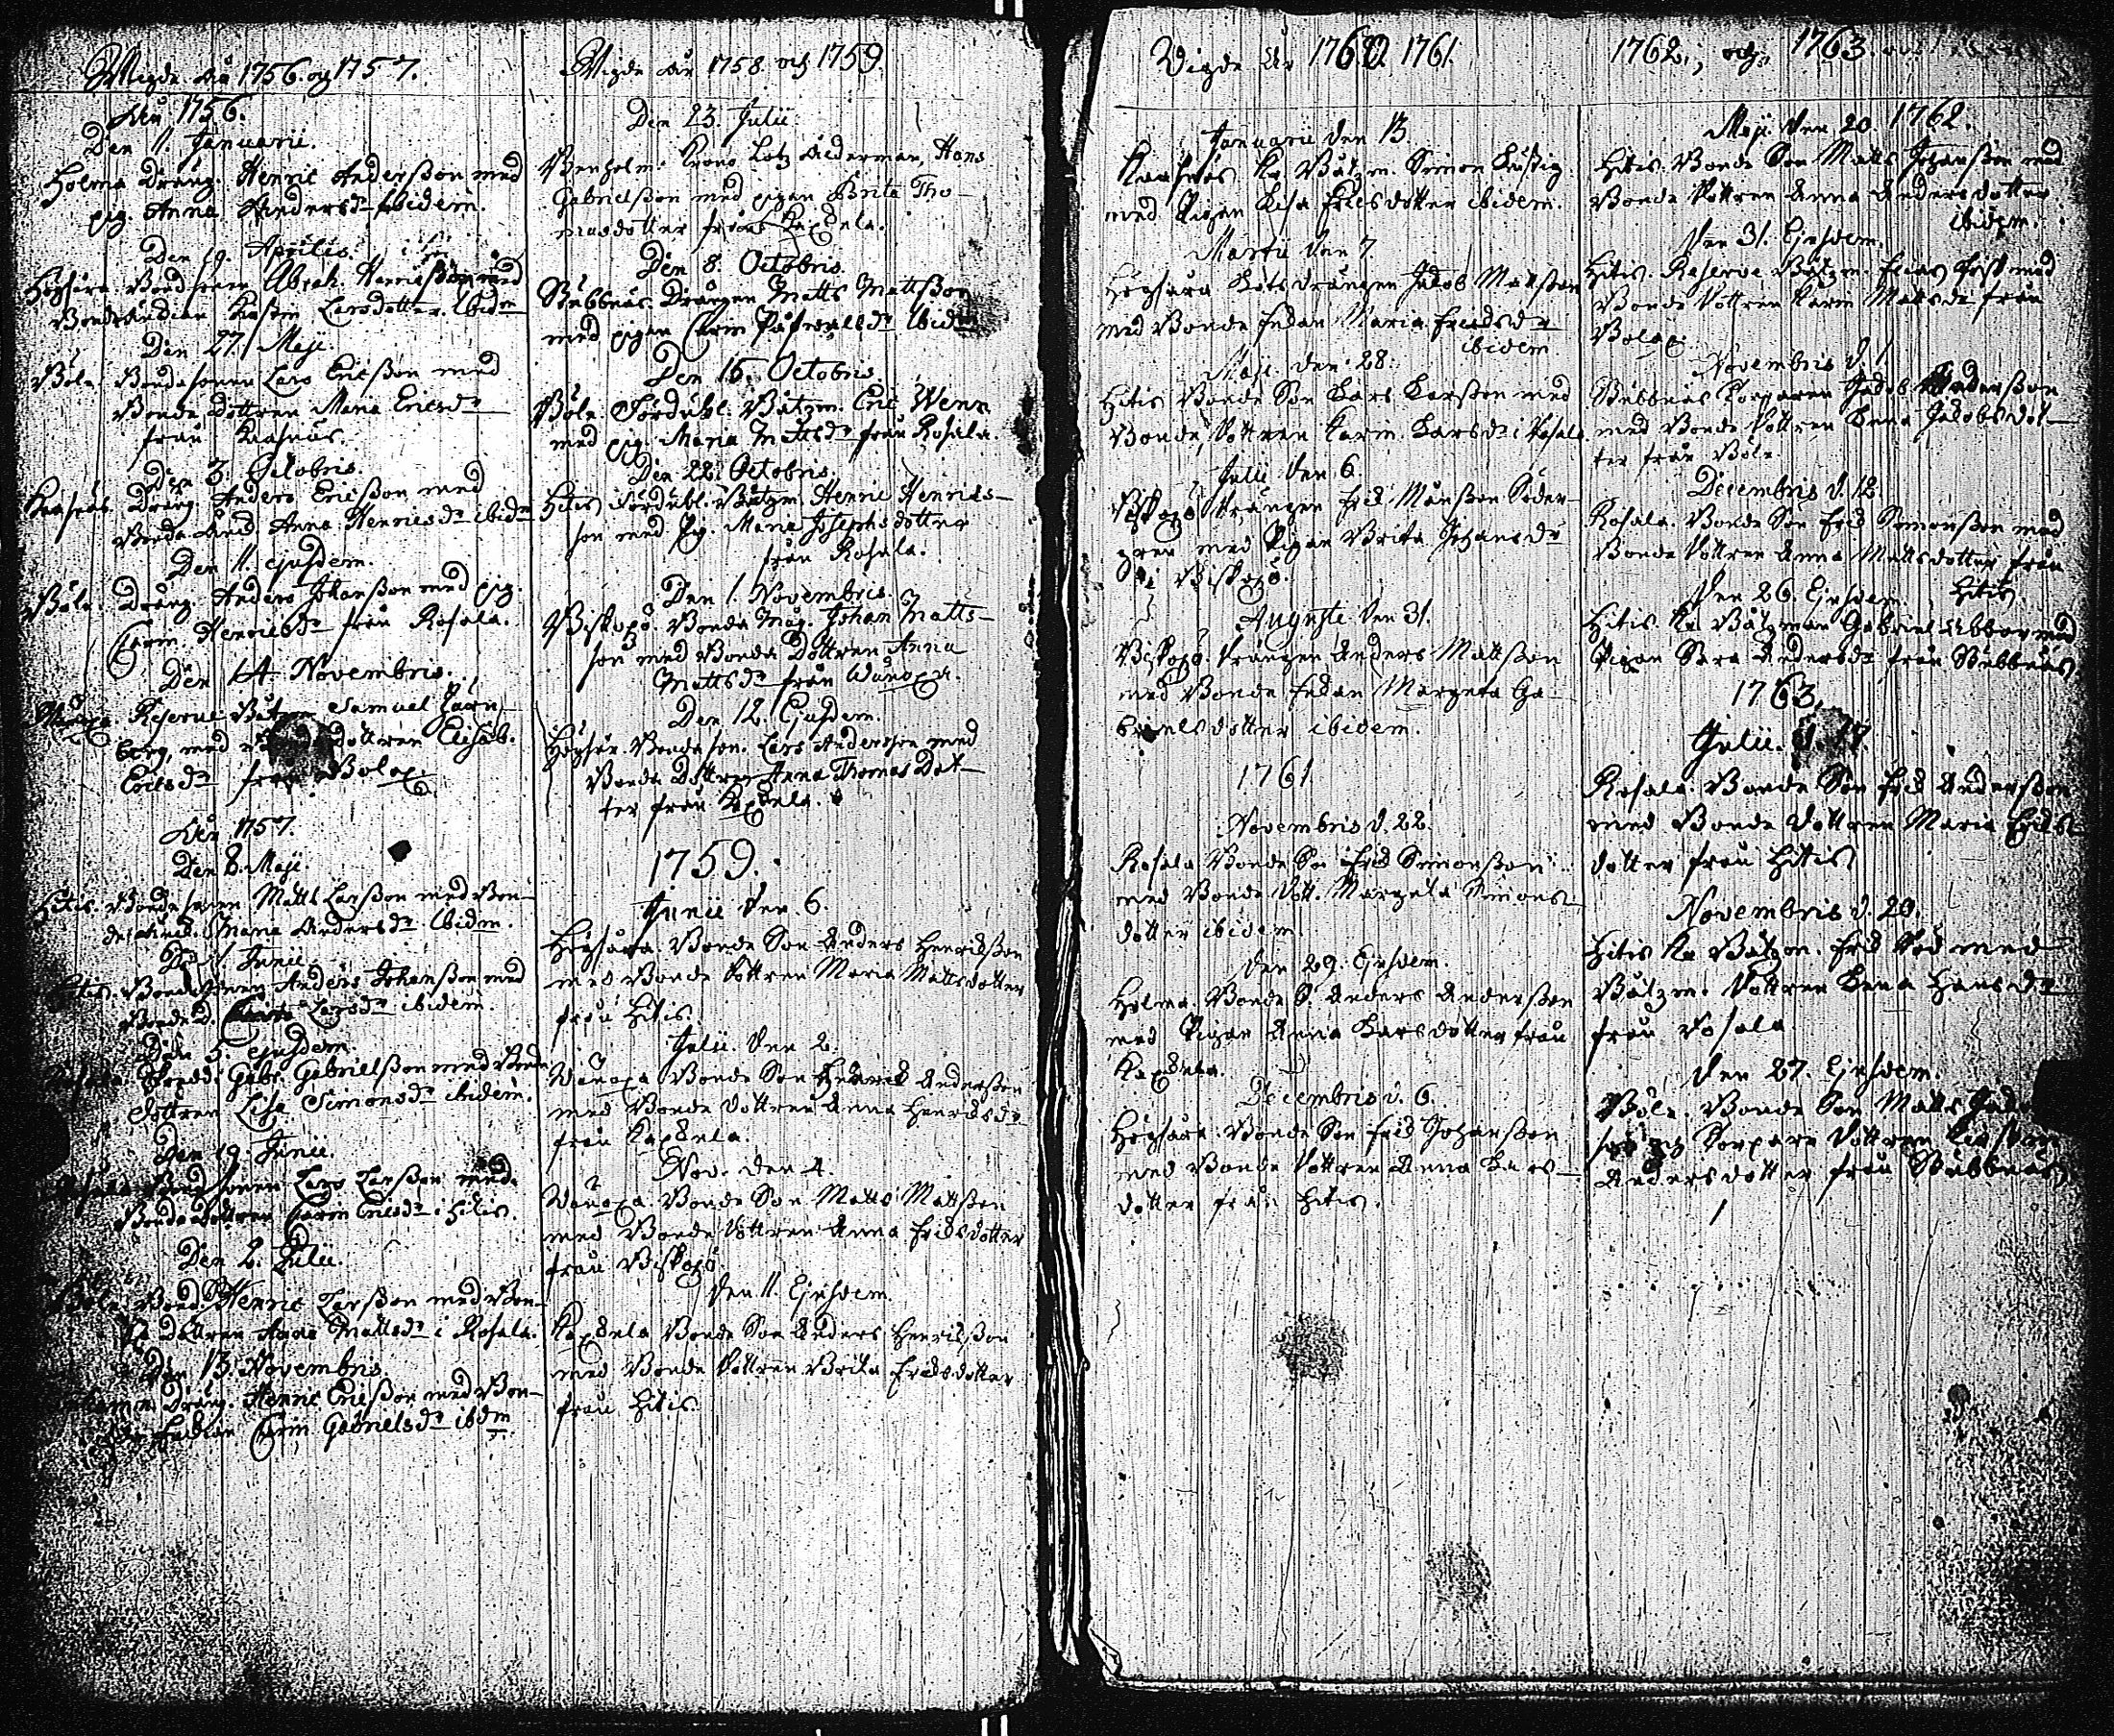 Wigde År 1756. och 1757.
År 1756.
Den 11. Januarii.
Holma Dräng. Henric Andersson med
pig. Anna Andersdr ibidem.
Den 19. Aprilis.
Högsåra Bondsonen Abrah. Henricsson med
Bonde änckian Carin Larsdotter. Ibidm
Den 27. Maji.
Böle. Bondesonen Lars Ericsson med
Bonde Dottren Maria Ericsdr
från Kasnäs.
Den 3. Octobris.
Kasnäs. Dräng. Anders Ericsson med
Bonde Anna Henricsdr ibidm
Den 11. ejusdem.
Böle. Dräng. Anders Johansson med pig.
Carin Henricsdr från Rosala.
Den 14 Novembris.
Reserve Båtzm Samuel
borg, med dottren Elisab.
Ericsdr från Bolax.
År 1757.
Den 8. Maji.
Hitis. Bondesonen Matts Larsson med Bon-
de Maria Andersdr Ibidm.
Junii.
Hitis. Bondesonen Anders Johansson med
Bonde D. Larsdr ibidem.
Den 5. ejusdem.
Rosala. Gabr. Gabrielsson med Bonde
dottren Lisa Simonsdr ibidem.
Den 19. Junii.
Rosala Bondesonen Lars Larsson med
Bonde Dottren Carin Ericsdr i Hitis.
Den 2. Julii.
Böle. Bond. Henric Larsson med Bon-
de dottren Anna Mattsdr i Rosala.
Den 13. Novembris
Dräng. Henric Ericsson med Bon-
de Enckian Carin Gabrielsdr ibdm
Wigde År 1758. och 1759.
Den 23. Julii.
Benholm. Krono Lotz Ålderman, Hans
Gabrielsson med pigan Brita Tho-
masdotter från Kaxskela.
Den 8. Octobris.
Stubbnäs Drängen Matts Mattsson
med pigan Carin Påfwalsdr Ibidm
Den 15. Octobris
Böle Fördubl. Båtzm. Eric Wenn
med pig. Maria Mattsdr från Rosala.
Den 22. Octobris.
Hitis Fördubl. Båtzm Henric Henrics-
son med Pig. Maria Josephsdotter
från Rosala.
Den 1. Novembris.
Biskopö. Bonde Måg. Johan Matts-
son med Bonde Dottren Anna
Mattsdr från Wänoxa.
Den 12. Ejusdem.
Högsår. Bondeson. Lars Andersson med
Bonde Dottren Anna Thomas Dot-
ter från Kaxskela.
1759.
Junii den 6.
Högsåra. Bonde Son Anders Henricsson
med Bonde Dottren Maria Mattsdotter
från Hitis.
Julii. den 2.
Wänoxa Bonde Son Andersson
med Bonde Dottren Anna Henricsdr
från Kaxskela.
Nov. den 4.
Wänoxa. Bonde Son Matts Mattsson
med Bonde Dottren Anna Ericsdotter
från Biskopö.
den 11. Ejusdem.
Kaxskela Bonde Son Anders Henricsson
med Bonde Dottren Brita Ericsdotter
från Hitis
Wigde År 1760 1761.
Januarii den 13.
Kasnäs Kr. Båtzm. Simon
med Pigan Lisa Ericsdotter ibidem.
Martii den 7.
Högsåra Lotsdrängen Jacob Mattsson
med Bonde Enckan Maria Ericsdr
ibidem
Maji. den 28.
Hitis Bonde Son Lars Larsson med
Bonde Dottren Karin Larsdr i Rosala
Julii den 6.
Biskopö Drängen Eric Månsson Söder-
gren med Pigan Brita Johansdr
i Biskopö.
Augusti den 31.
Biskopö. Drängen Anders Mattsson
med Bonde Enckan Margeta Ga-
brielsdotter ibidem.
1761
Novembris d. 22.
Rosala Bonde So Eric Simonsson
med Bonde Dott. Margeta Simons-
dotter ibidem.
den 29. Ejusdem.
Holma. Bonde S. Anders Andersson
med Pigan Anna Larsdotter från
Kaxskela.
Decembris d. 6.
Högsåra. Bonde Son Eric Johansson
med Bonde Dottren Anna Lars-
dotter från Hitis.
1762., och, 1763.
Maji. den 20. 1762.
Hitis. Bonde Son Matts Johansson med
Bonde Dottren Anna Andersdotter
ibidem.
den 31. Ejusdem.
Hitis Reserve Båtzm. Elias med
Bonde Dottren Karin Mattsdr från
Bolax.
Novembris d. 1
Stubbnäs Torparen Jacob Andersson
med Bonde Dottren Anna Jacobsdot-
ter från Böle.
Decembris d. 12
Rosala. Bonde Son Eric Simonsson med
Bonde Dottren Anna Mattsdotter från
Hitis
den 26. Ejusdem
Hitis Kr. Båtzman Gabriel Abbor med
Pigan Sara Andersdr från Stubbnäs
1763
Julii. d. 17.
Rosala. Bonde Son Eric Andersson
med Bonde Dottren Maria Erics-
dotter från Hitis
Novembris d. 20.
Hitis Kr. Båtzm. Eric med
Båtzm. Dottren Lena Hansdr
från Rosala
den 27. Ejusdem.
Böle. Bonde Son Matts
Torpare Dottren
Andersdotter från Stubbnäs